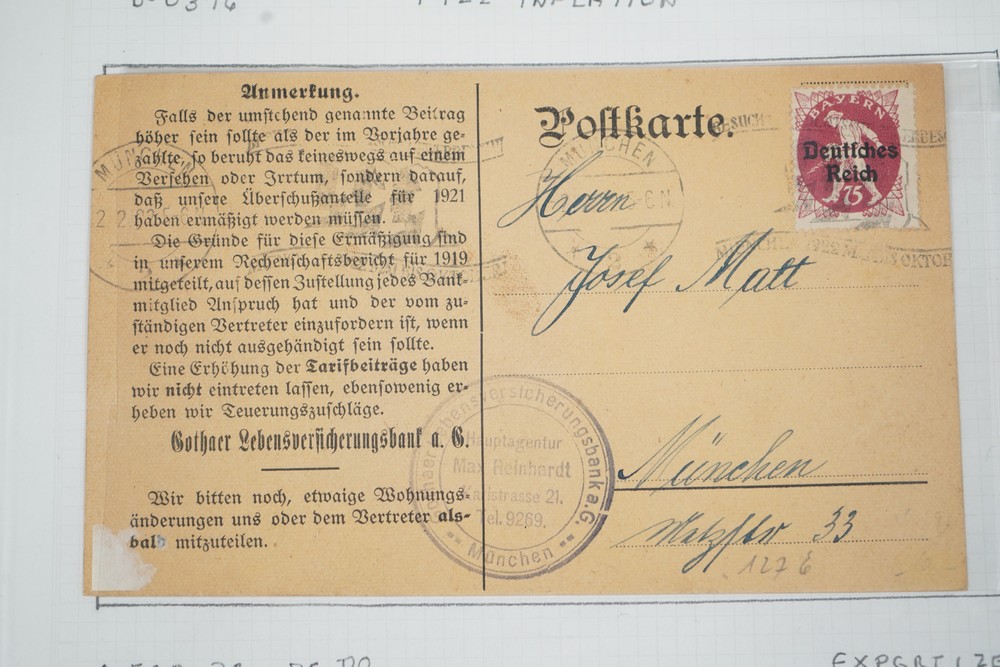 1922 INFLATION
Anmerkung.
Falls der umstehend genannte Beitrag
höher sein sollte als der im Vorjahre ge-
zahlte, so beruht das keineswegs auf einem
Versehen oder Irrtum, sondern darauf,
daß unsere Überschußanteile für 1921
haben ermäßigt werden müssen.
Die Gründe für diese Ermäßigung sind
in unserem Rechenschaftsbericht für 1919
mitgeteilt, auf dessen Zustellung jedes Bank-
mitglied Anspruch hat und der vom zu-
ständigen Vertreter einzufordern ist, wenn
er noch nicht ausgehändigt sein sollte.
Eine Erhöhung der Tarifbeiträge haben
wir nicht eintreten lassen, ebensowenig er-
heben wir Teuerungszuschläge.
Gothaer Lebensversicherungsbank a. G.
Wir bitten noch, etwaige Wohnungs-
änderungen uns oder dem Vertreter als-
bald mitzuteilen.
Postkarte.
BAYERN
Deutsches
Reich
75
MÜNCHEN
Herrn
Josef Matt
München
33
127 E
Gothaer Lebensversicherungsbank a.G.
Hauptagentur
Max Reinhardt
Karlstrasse 21.
Tel. 9269.
München